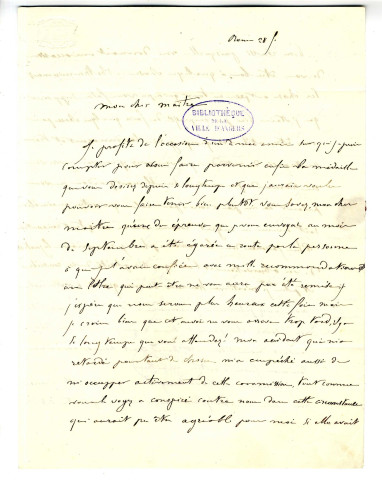 Rome 28 f.
mon cher maitre
BIBLIOTHÈQUE
DE LA
VILLE D'ANGERS
Je profite de l'occasion d'un ami sur qui je puis
compter pour vous faire parvenir enfin la médaille
que vous desirez depuis si longtemps et que j'aurais voulu
pouvoir vous faire tenir bien plutôt. vous savez, mon cher
maitre qu'une des épreuves que je vous envoyais au mois
de Septembre a été égarée en route par la personne
à qui je l'avais confiée avec mille recommandations
une lettre qui peut être ne vous aura pas été remise
j'espère que nous serons plus heureux cette fois mais
je crains bien que cet envoi ne vous arrive trop tard,
si longtemps que vous attendez! mon accident qui m'a
retardé pour tant de choses m'a empêché aussi de
m'occuper activement de cette commission, tout comme
vous le voyez a conspiré contre nous dans cette circonstance
qui aurait pu être agréable pour moi si elle avait